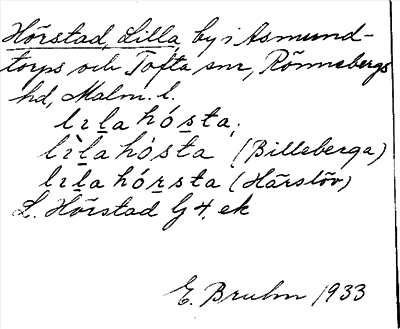 Hörstad, Lilla, by i Asmund-
torps och Tofta snr, Rönnebergs
hd, Malm. l.
lɪl̠a hós̠ta,
lɪ̀l̠a hós̠ta (Billeberga)
lɪl̠a hór̠sta (Härslöv)
L. Hörstad G 4. ek
E. Bruhn 1933